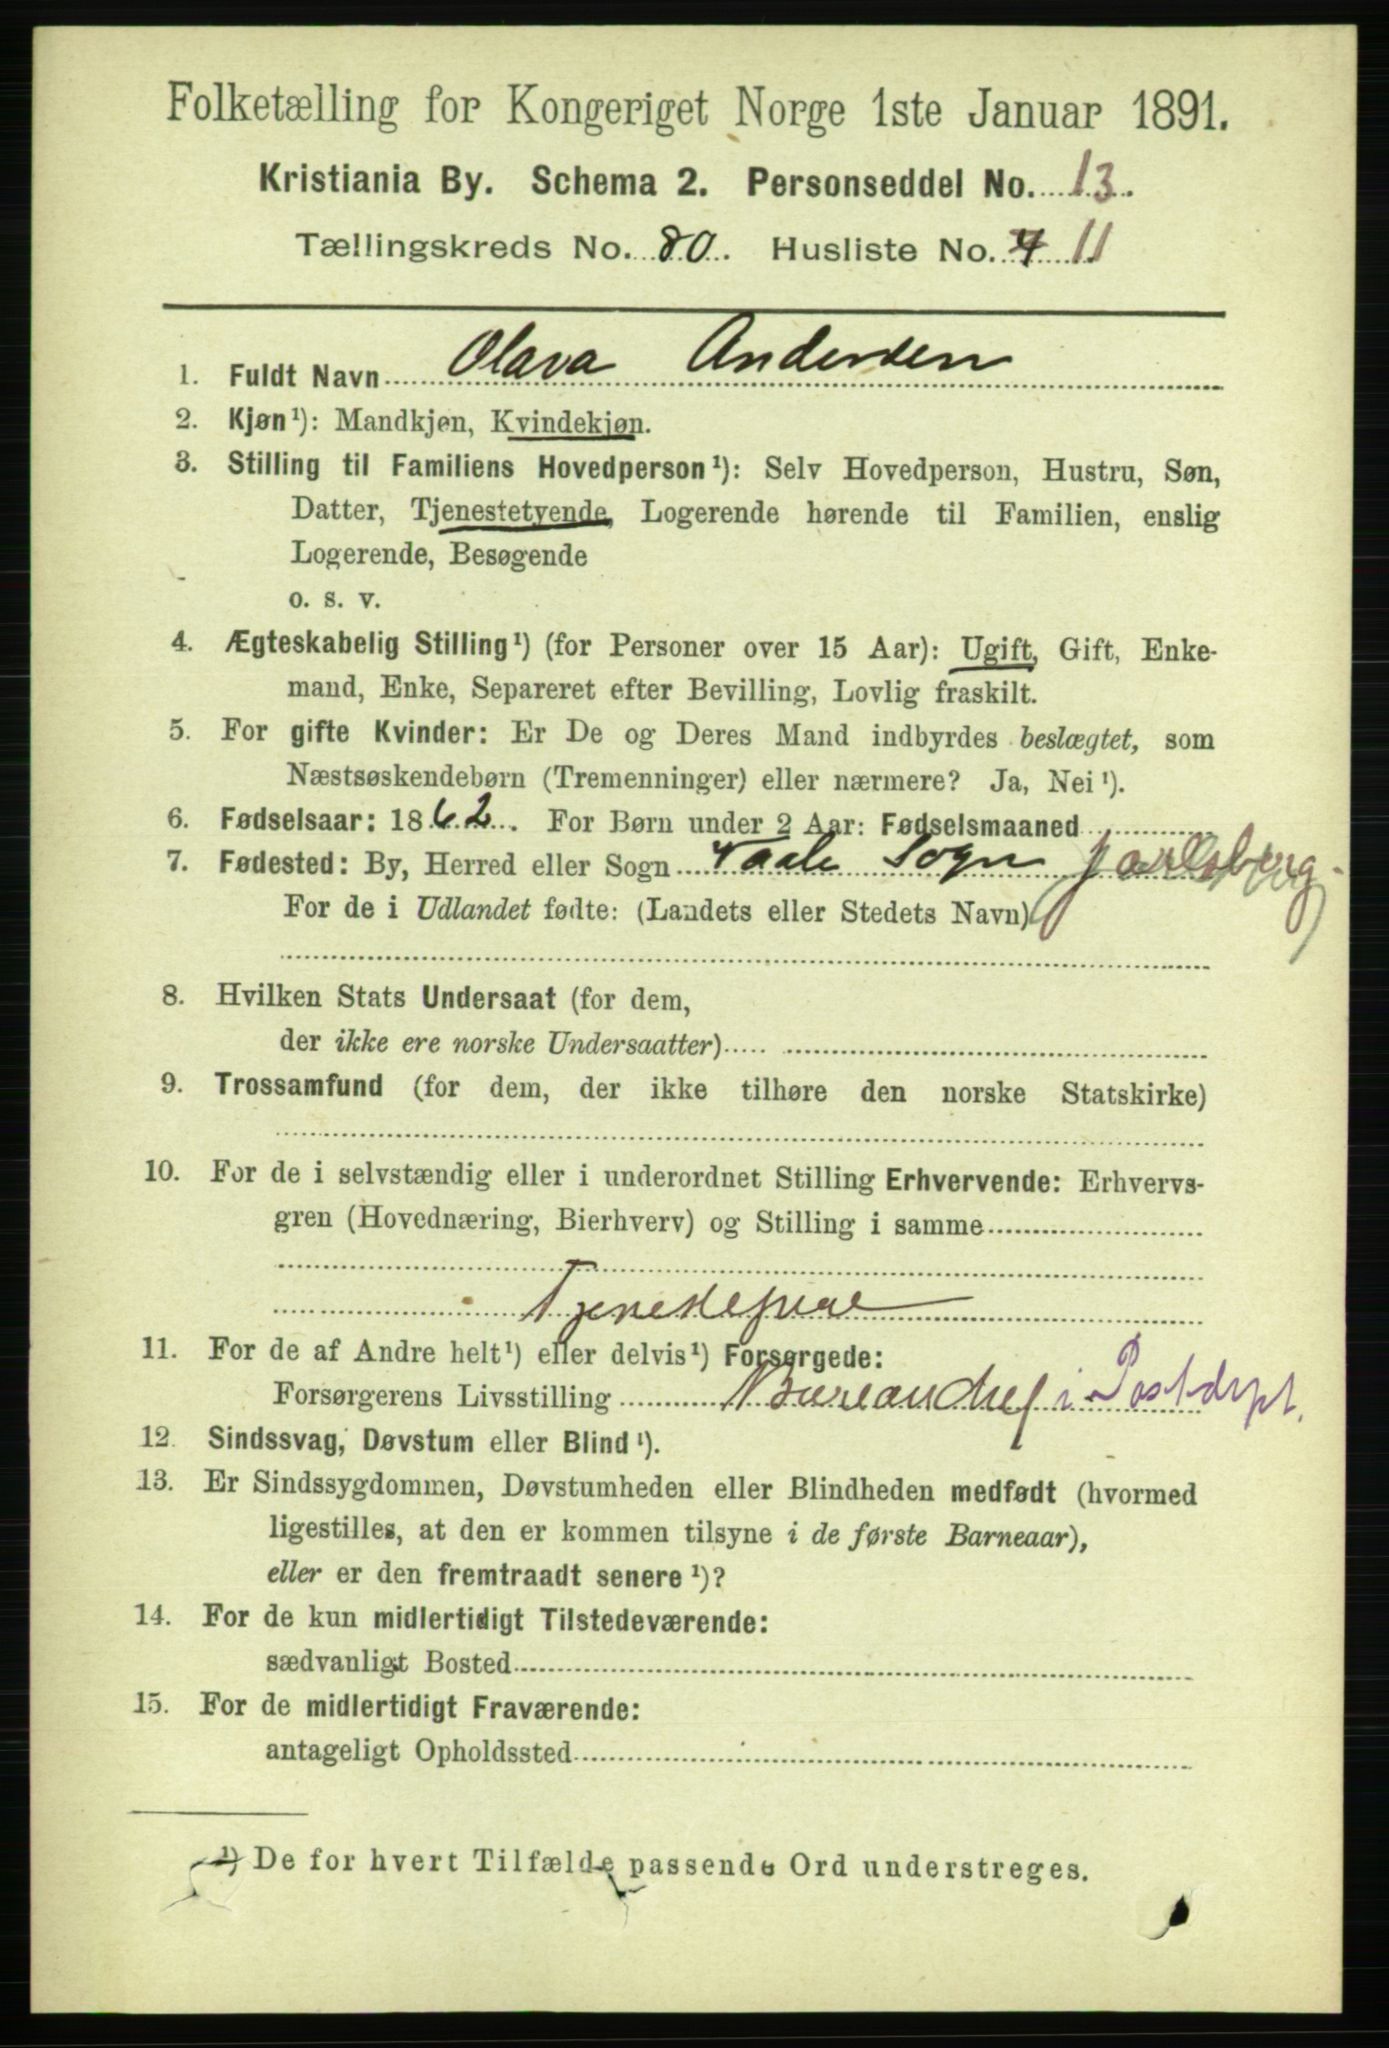 Folketælling for Kongeriget Norge 1ste Januar 1891.
Kristiania By. Schema 2. Personseddel No. 13.
Tællingskreds No. 80. Husliste No. 4 11
1. Fuldt Navn Olava Andersen
2. Kjøn¹): Mandkjøn, Kvindekjøn.
3. Stilling til Familiens Hovedperson¹): Selv Hovedperson, Hustru, Søn,
Datter, Tjenestetyende, Logerende hørende til Familien, enslig
Logerende, Besøgende
o. s. v.
4. Ægteskabelig Stilling¹) (for Personer over 15 Aar): Ugift, Gift, Enke-
mand, Enke, Separeret efter Bevilling, Lovlig fraskilt.
5. For gifte Kvinder: Er De og Deres Mand indbyrdes beslægtet, som
Næstsøskendebørn (Tremenninger) eller nærmere? Ja, Nei¹).
6. Fødselsaar: 1862. For Børn under 2 Aar: Fødselsmaaned
7. Fødested: By, Herred eller Sogn Vaale Sogn Jarlsberg.
For de i Udlandet fødte: (Landets eller Stedets Navn)
8. Hvilken Stats Undersaat (for dem,
der ikke ere norske Undersaatter)
9. Trossamfund (for dem, der ikke tilhøre den norske Statskirke)
10. For de i selvstændig eller i underordnet Stilling Erhvervende: Erhvervs-
gren (Hovednæring, Bierhverv) og Stilling i samme
Tjenestepige
11. For de af Andre helt¹) eller delvis¹) Forsørgede:
Forsørgerens Livsstilling Bureauchef i Postdept.
12. Sindssvag, Døvstum eller Blind¹).
13. Er Sindssygdommen, Døvstumheden eller Blindheden medfødt (hvormed
ligestilles, at den er kommen tilsyne i de første Barneaar),
eller er den fremtraadt senere¹)?
14. For de kun midlertidigt Tilstedeværende:
sædvanligt Bosted
15. For de midlertidigt Fraværende:
antageligt Opholdssted
¹) De for hvert Tilfælde passende Ord understreges.